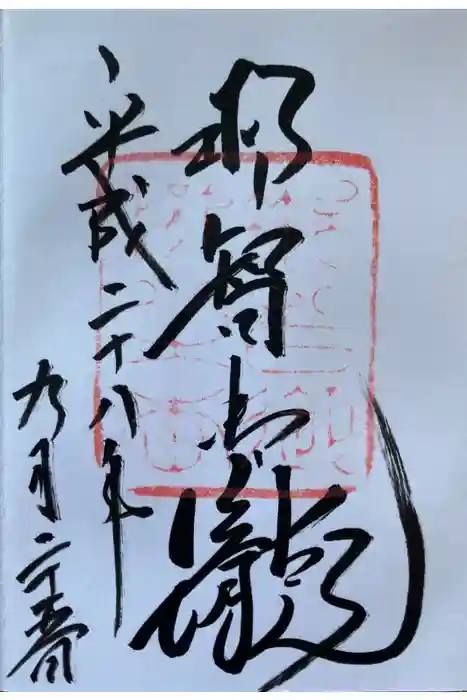 那智御瀧
平成二十八年
九月二十五日